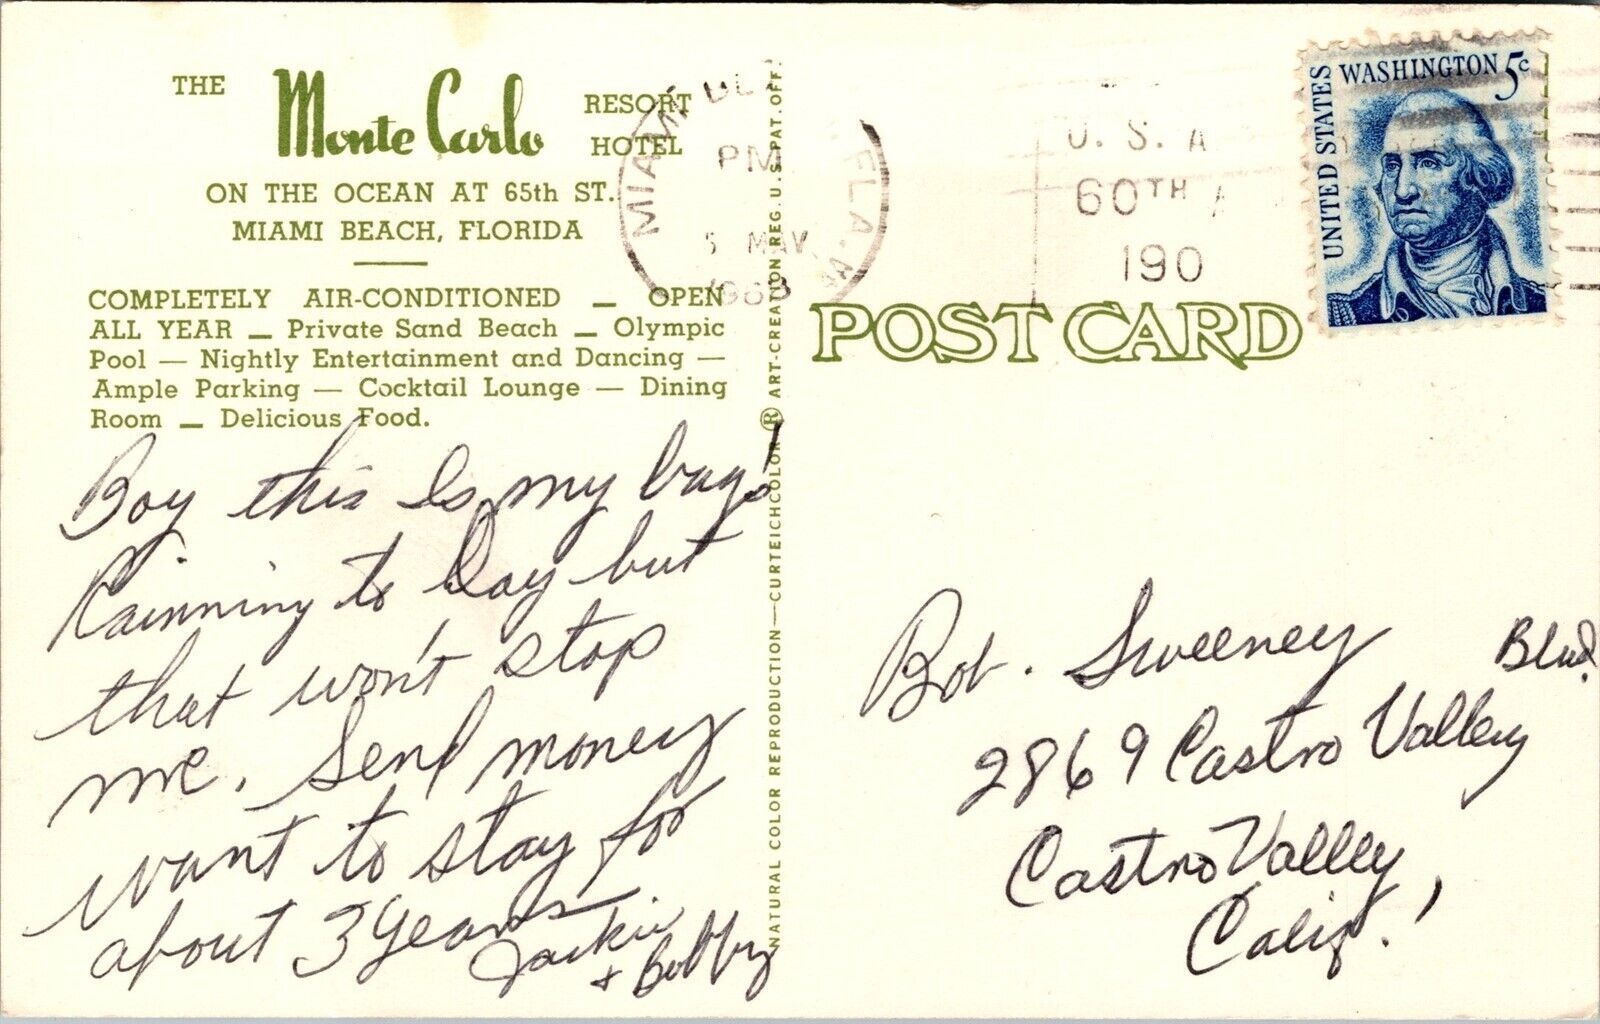 THE Monte Carlo RESORT HOTEL
ON THE OCEAN AT 65th ST.
MIAMI BEACH, FLORIDA
COMPLETELY AIR-CONDITIONED — OPEN
ALL YEAR — Private Sand Beach — Olympic
Pool — Nightly Entertainment and Dancing —
Ample Parking — Cocktail Lounge — Dining
Room — Delicious Food.
Boy this Is my bag!
Rainning to Day but
that won't stop
me. Send money
want to stay for
about 3 years
Jackie
+ Bobby
NATURAL COLOR REPRODUCTION—CURTEICHCOLOR ® ART-CREATION REG. U.S. PAT. OFF.
MIAMI FLA.
PM
5 MAY
1968
U. S. A
60TH A
190
UNITED STATES
WASHINGTON 5c
POST CARD
Bob. Sweeney
2869 Castro Valley Blvd.
Castro Vallley,
Calif.